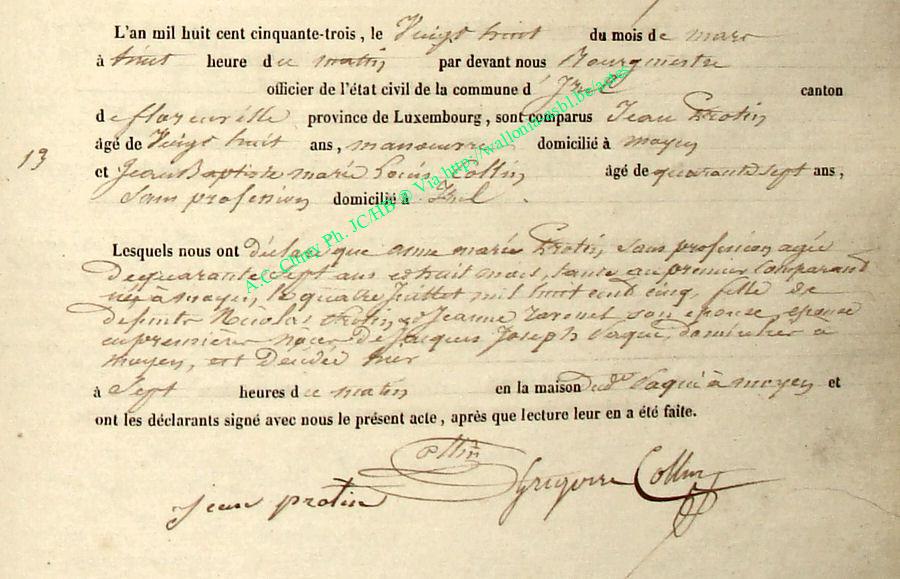 L'an mil huit cent cinquante-trois, le Vingt huit du mois de mars
à huit heure du matin par devant nous Bourgmestre
officier de l'état civil de la commune d' Izel canton
de florenville province de Luxembourg, sont comparus Jean Protin
âgé de Vingt huit ans, manoeuvre, domicilié à moyen
13
et Jean Baptiste marie Louis Collin âgé de quarante sept ans,
Sans profession domicilié à Izel.
Lesquels nous ont déclaré que anne marie Protin, sans profession agée
de quarante sept ans mois, tante au premier Comparand
née à moyen, le quatre Juillet mil huit cent cinq, fille de
defunts Nicolas Protin et Jeanne son épouse, épouse
en premières noces de Jacques Joseph Paqui, domicilier à
moyen, est Décédée hier
à Sept heures du matin en la maison Dudt Paqui à moyen et
ont les déclarants signé avec nous le présent acte, après que lecture leur en a été faite.
Collin
jean protin Grégoire Collin
A.C. Chiny Ph. JC/HB @ Via http://wallonia-asbl.be/actes